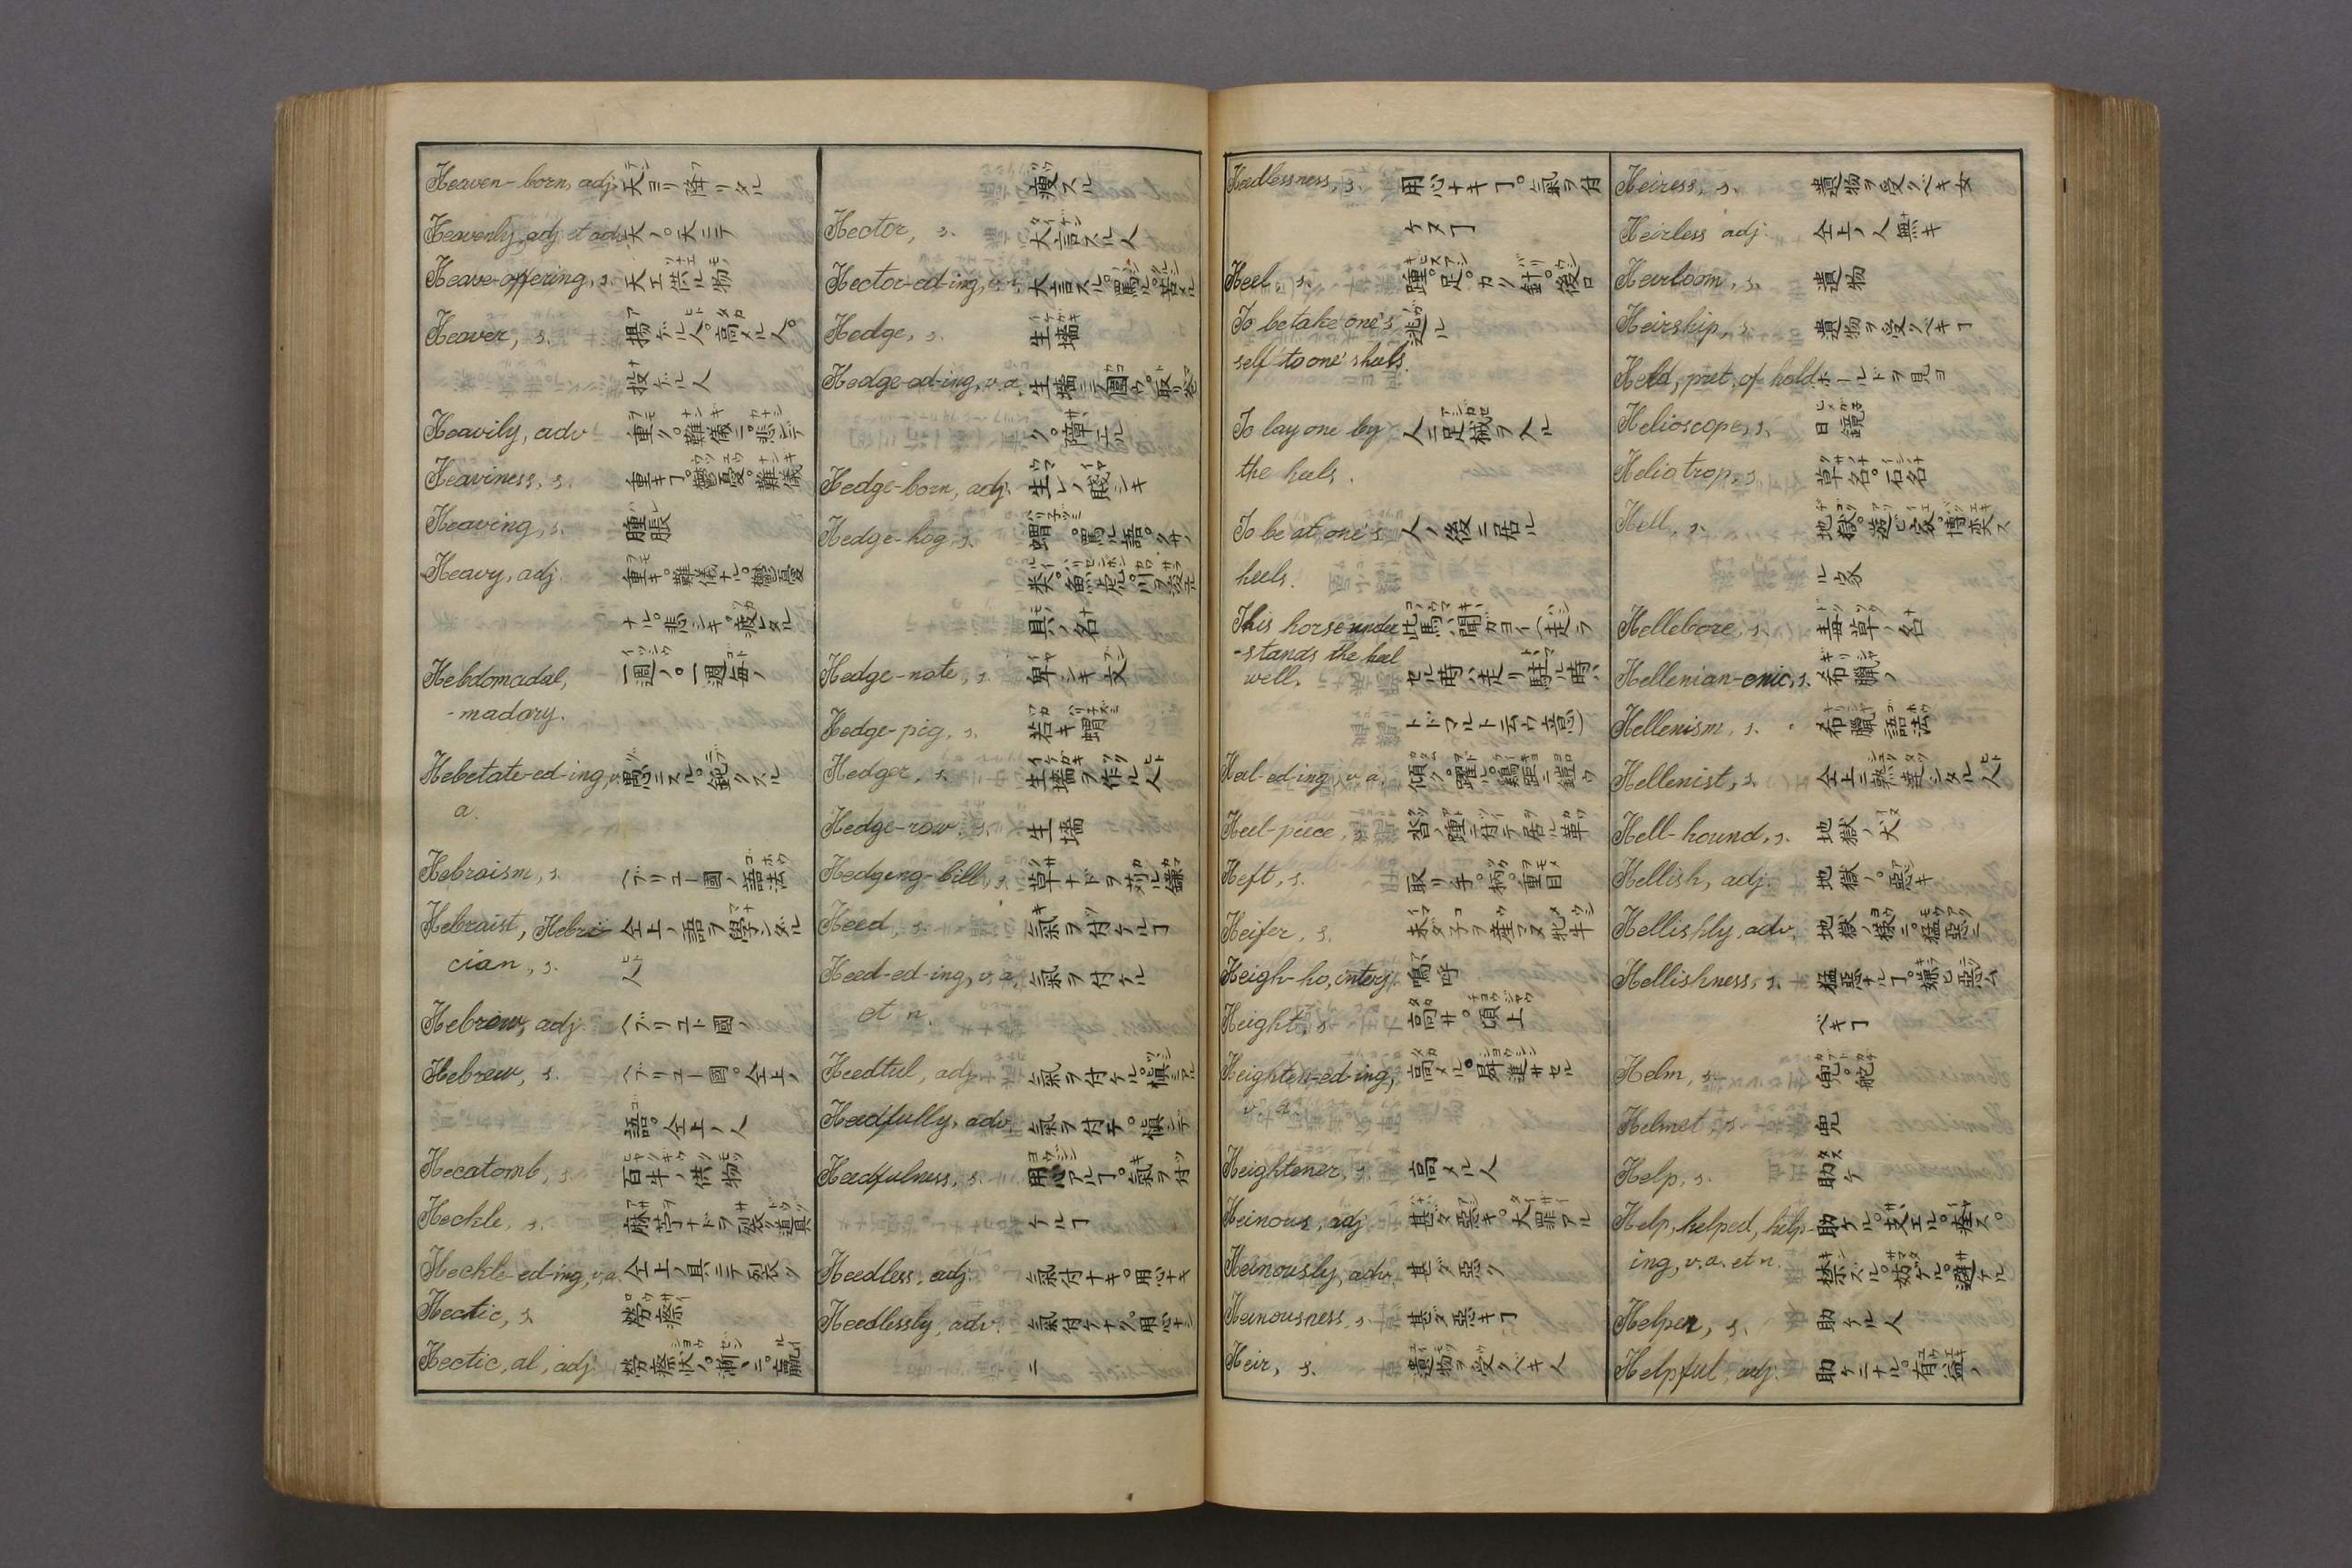 Heaven-born, adj. 天ヨリ降リタル
Heavenly, adj. et adv. 天ノ。天ニテ
Heave-offering, s. 天エ供ル物
Heaver, s. 揚ゲル人。高メル人。
投ゲル人
Heavily, adv 重ク。難儀ニ。悲シテ
Heaviness, s. 重キヿ。鬱憂。難儀
Heaving, s. 腫脹
Heavy, adj. 重キ。難儀ナル。鬱憂
ナル。悲シキ。疲レタル
Hebdomadal, 一週ノ。一週毎ノ
-madary.
Hebetate-ed-ing, v. 愚ニスル。鈍クスル
a.
Hebraism, s. ヘブリユー國ノ語法
Hebraist, Hebri- 仝上ノ語ヲ學ンダル
cian, s. 人
Hebrew, adj. ヘブリユー國ノ
Hebrew, s. ヘブリユー國。仝上ノ
語。仝上ノ人
Hecatomb, s. 百牛ノ供物
Heckle, s. 麻苧ナドヲ裂ク道具
Heckle-ed-ing, v.a. 仝上ノ具ニテ裂ク
Hectic, s. 勞瘵
Hectic, al, adj. 勞瘵状ノ。漸々ニ。羸
痩スル
Hector, s. 大言スル人
Hector-ed-ing, v.a. 大言スル。罵ル。苦メル
Hedge, s. 生墻
Hedge-ed-ing, v.a. 生墻ニテ圍ウ。取リ巻
ク。障エル
Hedge-born, adj. 生レノ賎シキ
Hedge-hog, s. 蝟。罵ル語。クサノ
類。魚ノ名
具ノ名
Hedge-note, s. 卑シキ文
Hedge-pig, s. 若キ蝟
Hedger, s. 生墻ヲ作ル人
Hedge-row, s. 生墻
Hedgeng-bill, s. 草ナドヲ苅ル鎌
Heed, s. 氣ヲ付ケルヿ
Heed-ed-ing, v.a. 氣ヲ付ケル
et n.
Heedful, adj. 氣ヲ付ケル。愼シアル
Heedfully, adv. 氣ヲ付テ。愼シテ
Heedfulness, s. 用心アルヿ。氣ヲ付
ケルヿ
Heedless, adj. 氣付ナキ。用心ナキ
Heedlessly, adv. 氣付ケナク。用心ナシ
ニ
Heedlessness, s. 用心ナキヿ。氣ヲ付
ケヌヿ
Heel, s. 踵。足。カリ針。後口
To betake one's 逃ル
self to one's heels.
To lay one by 人ニ足械ヲ入ル
the heels.
To be at one's 人ノ後ニ居ル
heels.
This horse under 此馬ハ調ガヨイ(走ラ
-stands the heel セル時ハ走リ駐ル時ハ
well. トドマルト云ウ意)
Heel-ed-ing, v.a. 傾ク。躍ル。鷄ニ鎧ウ
Heel-piece, 沓ノ踵ニ付テ居ル革
Heft, s. 取リ手。柄。重目
Heifer, s. 未ダ子ヲ産マヌ牝牛
Heigh-ho, interj. 嗚呼
Height, s. 高サ。頂上
Heighten-ed-ing, 高メル。昇進サセル
v. a.
Heightener, s. 高メル人
Heinous, adj. 甚ダ惡キ。大罪アル
Heinously, adv. 甚ダ惡ク
Heinousness, s. 甚ダ惡キヿ
Heir, s. 遺物ヲ受クベキ人
Heiress, s. 遺物ヲ受クベキ女
Heirless adj. 仝上ノ人無キ
Heirloom, s. 遺物
Heirship, s. 遺物ヲ受クベキヿ
Held, pret. of hold. ホールドヲ見ヨ
Helioscope, s. 日鏡
Heliotrop, s. 草名。石名
Hell, s. 地獄。遊ビ家。博奕ス
ル家
Hellebore, s. 毒草ノ名
Hellenian-enic, s. 希臘ノ
Hellenism, s. 希臘語法
Hellenist, s. 仝上ニ熟達シタル人
Hell-hound, s. 地獄ノ犬
Hellish, adj. 地獄ノ。惡キ
Hellishly, adv. 地獄ノ様ニ。猛惡ニ
Hellishness, s. 猛惡ナルヿ。嫌ヒ惡ム
ベキヿ
Helm, s. 兜。舵
Helmet, s. 兜
Help, s. 助ケ
Help, helped, help- 助ケル。支エル。癒ス。
ing, v.a. et n. 禁ズル。妨ケル。避ケル
Helper, s. 助ケル人
Helpful, adj. 助ケニナル。有益ノ